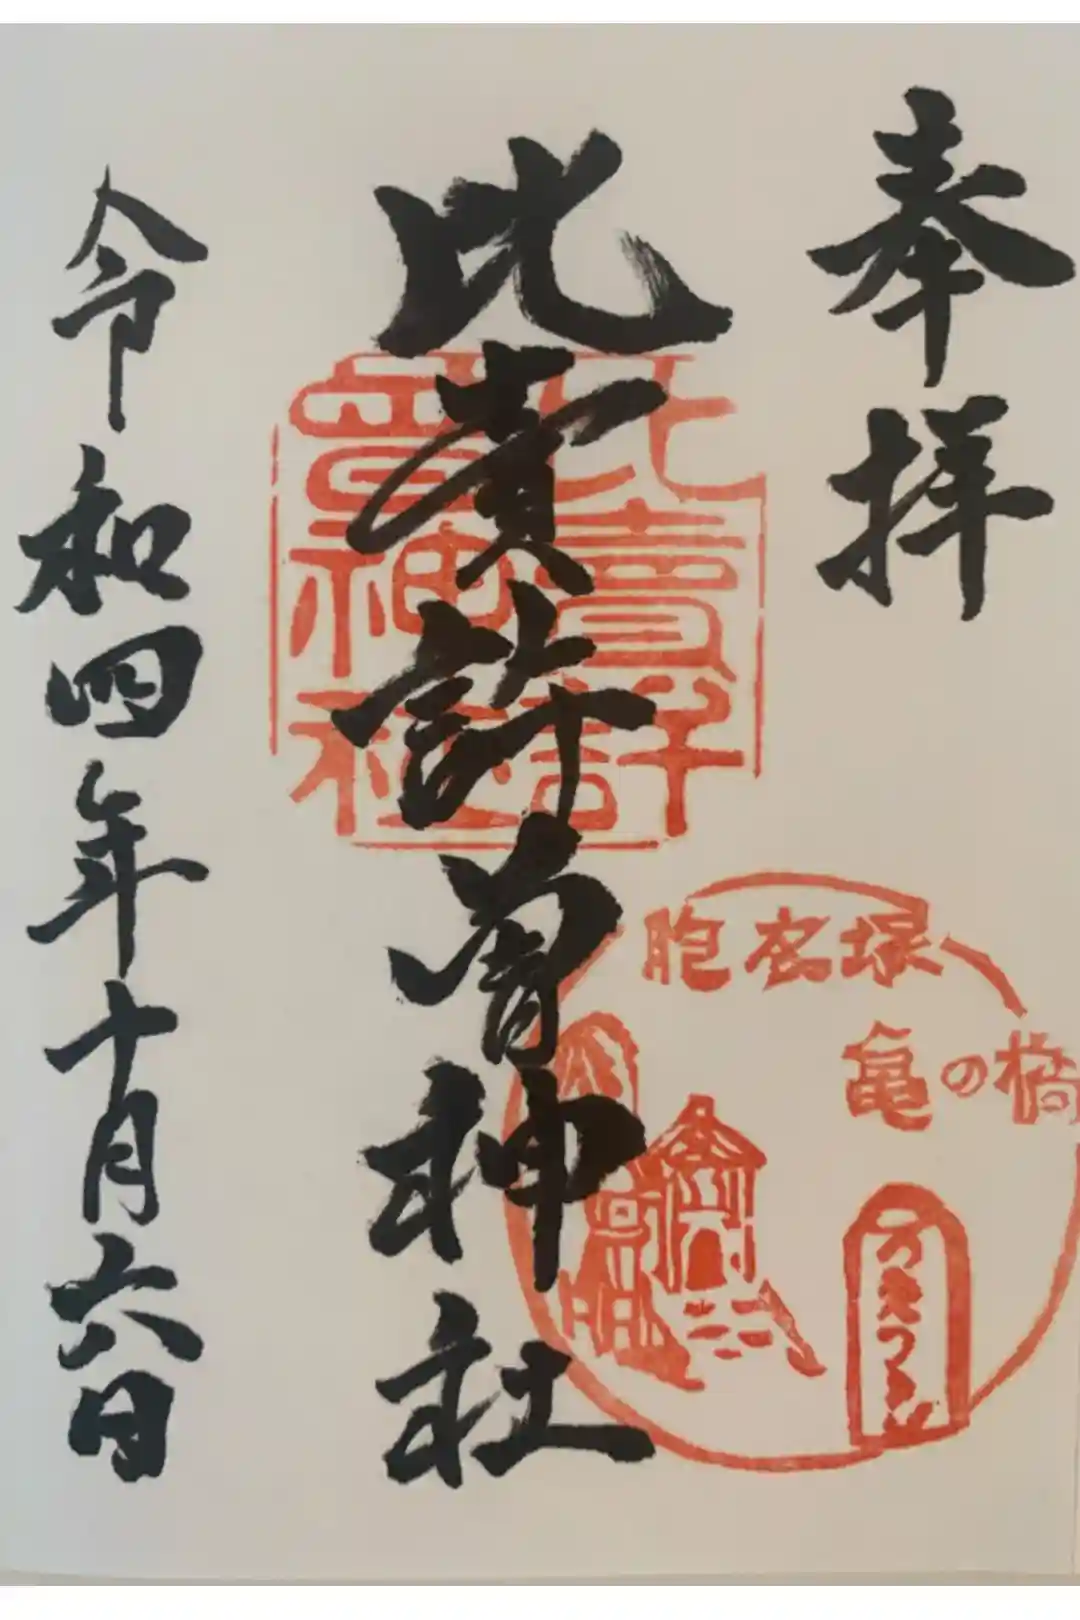 奉拝
比売許曽神社
令和四年十月六日
比賣許曽神社
胞衣塚
亀の橋